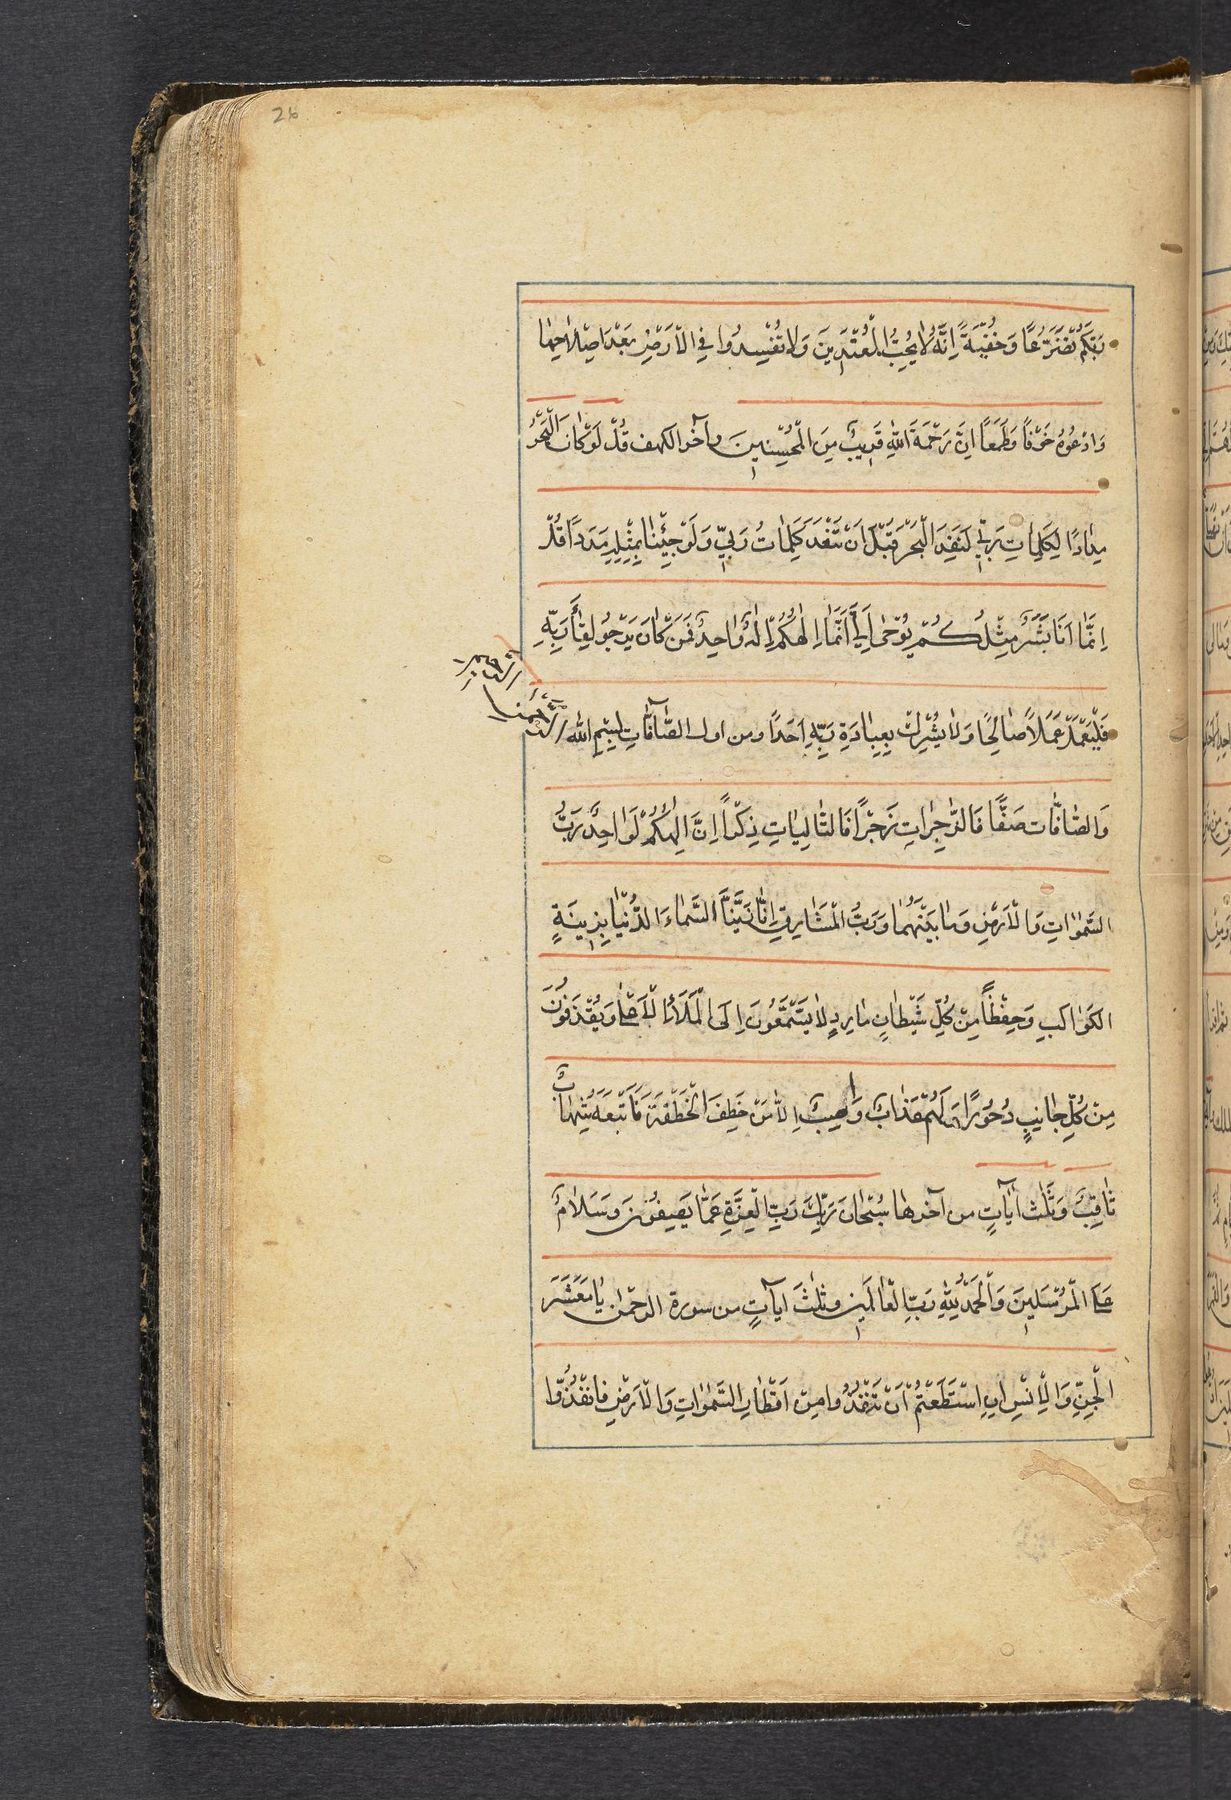 26
رَبَّكُمْ تَضَرُّعًا وَخُفْيَةً اِنَّهُ لٰا يُحِبُّ الْمُعْتَدِينَ وَلٰا تُفْسِدُوا فِي الْاَرْضِ بَعْدَ اِصْلٰاحِهٰا
وَادْعُوهُ خَوْفًا وَطَمَعًا اِنَّ رَحْمَةَ اللّٰهِ قَرِيبٌ مِنَ الْمُحْسِنِينَ وآخر الكهف قُلْ لَوْ كٰانَ الْبَحْرُ
مِدٰادًا لِكَلِمٰاتِ رَبّي لَنَفِدَ الْبَحْرُ قَبْلَ اَنْ تَنْفَدَ كَلِمٰاتُ رَبّي وَلَوْ جِئْنٰا بِمِثْلِهِ مَدَدًا قُلْ
اِنَّمٰا اَنَا بَشَرٌ مِثْلُكُمْ يُوحٰى اِلَيَّ اَنَّمٰا اِلٰهُكُمْ اِلٰهٌ وٰاحِدٌ فَمَنْ كٰانَ يَرْجُو لِقٰاءَ رَبِّهِ
فَلْيَعْمَلْ عَمَلًا صٰالِحًا وَلٰا يُشْرِكْ بِعِبٰادَةِ رَبِّهِ اَحَدًا ومن اول الصّٰافّٰاتِ بِسْمِ اللّٰهِ الرَّحْمٰنِ
الرَّحيمِ
وَالصّٰافّٰات صَفًّا فَالزّٰجِرٰاتِ زَجْرًا فَالتّٰالِيٰاتِ ذِكْرًا اِنَّ اِلٰهَكُمْ لَوٰاحِدٌ رَبُّ
السَّمٰوٰاتِ وَالْاَرْضِ وَمٰا بَيْنَهُمٰا وَرَبُّ الْمَشٰارِقِ اِنّٰا زَيَّنَّا السَّمٰاءَ الدُّنْيٰا بِزِينَةٍ
الكَوٰاكِبِ وَحِفْظًا مِنْ كُلِّ شَيْطٰانٍ مٰارِدٍ لٰا يَسَّمَّعُونَ اِلَى الْمَلَأِ الْاَعْلٰى وَيُقْذَفُونَ
مِنْ كُلِّ جٰانِبٍ دُحُورًا وَلَهُمْ عَذٰابٌ وٰاصِبٌ اِلّٰا مَنْ خَطِفَ الْخَطْفَةَ فَاَتْبَعَهُ شِهٰابٌ
ثٰاقِبٌ وَثَلٰثَ اٰيٰاتٍ من آخرها سُبْحٰانَ رَبِّكَ رَبِّ الْعِزَّةِ عَمّٰا يَصِفُونَ وَسَلٰامٌ
عَلَى الْمُرْسَلينَ وَالْحَمْدُ لِلّٰهِ رَبِّ الْعٰالَمِينَ وثلٰثَ اٰيٰاتٍ من سورة الرحمٰن يٰا مَعْشَرَ
الْجِنِّ وَالْاِنْسِ اِنِ اسْتَطَعْتُمْ اَنْ تَنْفُذُوا مِنْ اَقْطٰارِ السَّمٰوٰاتِ وَالْاَرْضِ فٰانْفُذُوا